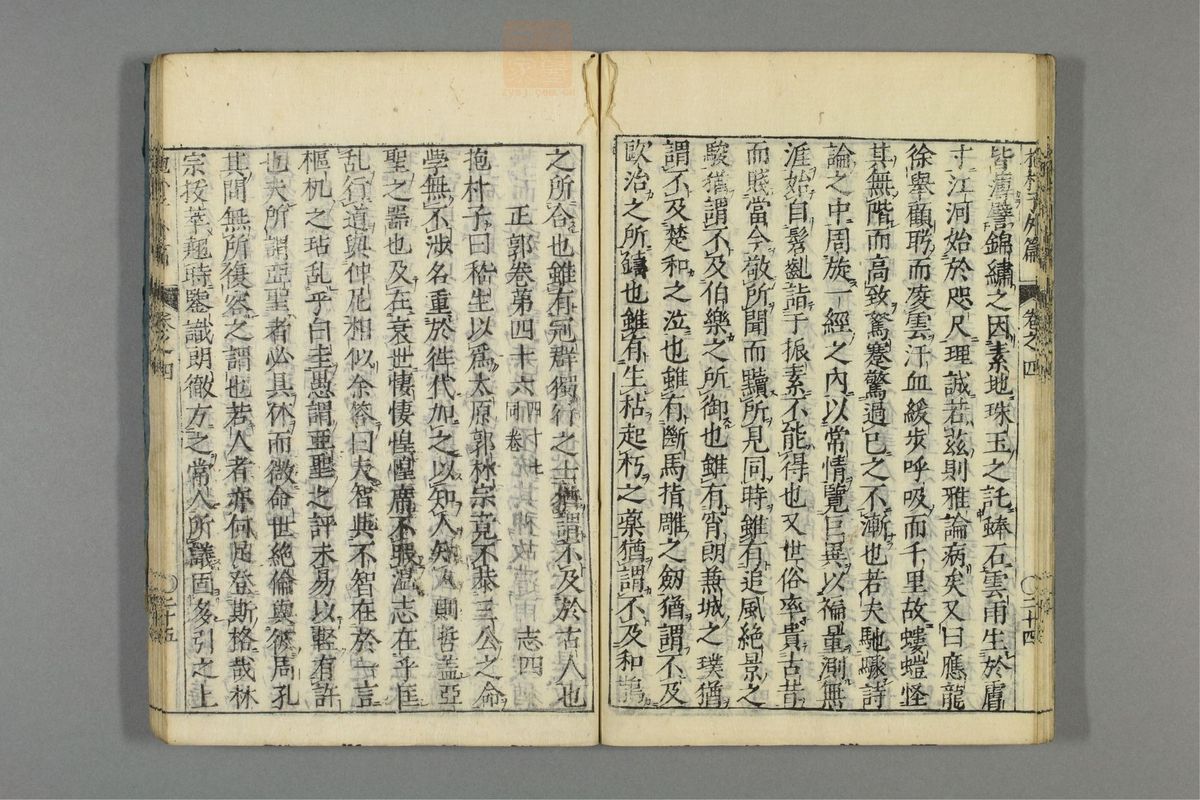 抱朴子外篇 卷之四 〇二十四
皆薄襞錦繡之因素地珠玉之託蜯石雲雨生於膚
寸江河始於咫尺理誠若茲則雅論病矣又曰應龍
徐舉顧眄而凌雲汗血緩步呼吸而千里故螻螘怪
其無階而高致駑蹇驚過已之不漸也若夫馳驟詩
論之中周旋一經之內以常情覽巨異以褊量測無
涯始自髫齔詣于振素不能得也又世俗率貴古昔
而賤當今敬所聞而黷所見同時雖有追風絕景之
駿猶謂不及伯樂之所御也雖有宵朗兼城之璞猶
謂不及楚和之泣也雖有斷馬指雕之劒猶謂不及
歐冶之所鑄也雖有生枯起朽之藥猶謂不及和鵲
之所合也雖有冠群獨行之士猶謂不及於古人也
正郭卷第四十六 四十七同卷 志四
抱朴子曰嵇生以爲太原郭林宗竟不恭三公之命
學無不涉名重於徃代加之以知人知人則哲盖亞
聖之器也及在衰世悽悽惶惶席不暇溫志在乎匡
乱行道與仲尼相似余答曰夫智與不智在於一言
樞机之玷乱乎白圭愚謂亞聖之評未易以輕有許
也夫所謂亞聖者必具体而微命世絕倫與彼周孔
其間無所復容之謂也若人者亦何足登斯格哉林
宗拔萃翹時鑒識朗徹方之常人所議固多引之上
卷之四 〇二十五